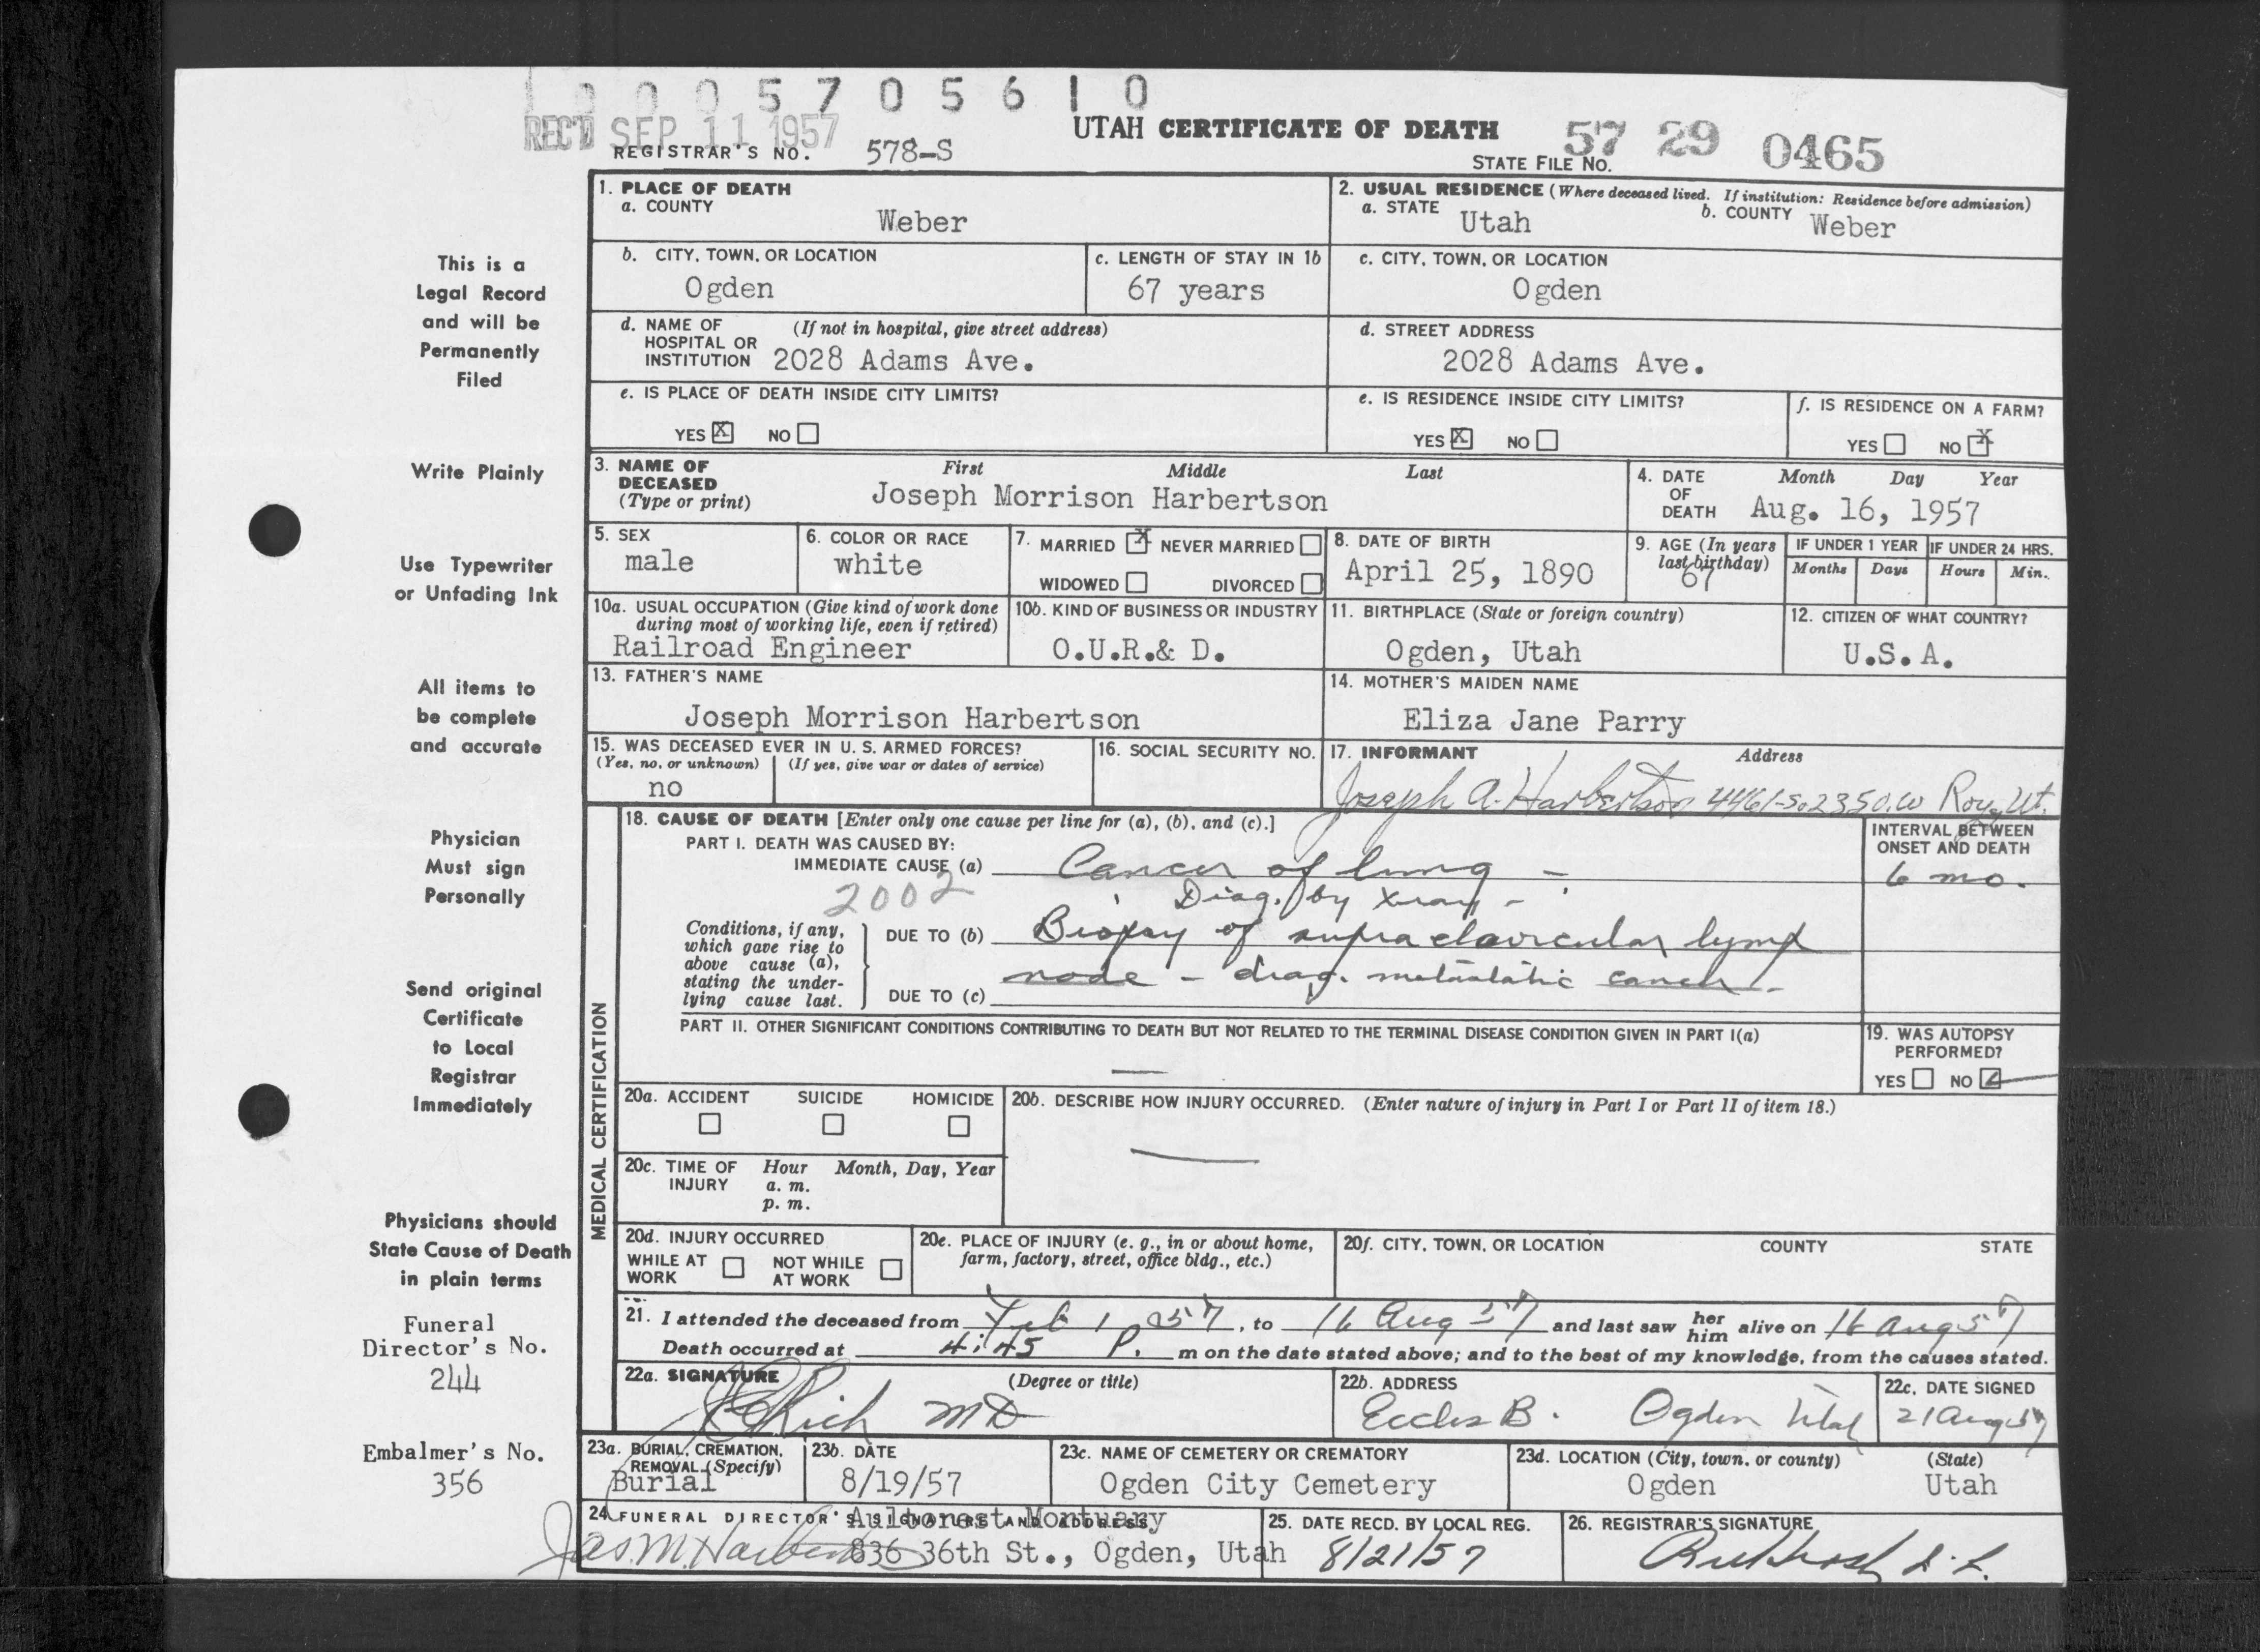 1 0 0 0 5 7 0 5 6 1 0
REC'D SEP 11 1957
UTAH CERTIFICATE OF DEATH
REGISTRAR'S NO. 578-S
STATE FILE NO. 57 29 0465
This is a
Legal Record
and will be
Permanently
Filed
Write Plainly
Use Typewriter
or Unfading Ink
All items to
be complete
and accurate
Physician
Must sign
Personally
Send original
Certificate
to Local
Registrar
Immediately
Physicians should
State Cause of Death
in plain terms
Funeral
Director's No.
244
Embalmer's No.
356
1. PLACE OF DEATH
a. COUNTY
Weber
2. USUAL RESIDENCE (Where deceased lived. If institution: Residence before admission)
a. STATE Utah b. COUNTY Weber
b. CITY, TOWN, OR LOCATION
Ogden
c. LENGTH OF STAY IN 1b
67 years
c. CITY, TOWN, OR LOCATION
Ogden
d. NAME OF (If not in hospital, give street address)
HOSPITAL OR
INSTITUTION 2028 Adams Ave.
d. STREET ADDRESS
2028 Adams Ave.
e. IS PLACE OF DEATH INSIDE CITY LIMITS?
YES X NO
e. IS RESIDENCE INSIDE CITY LIMITS?
YES X NO
f. IS RESIDENCE ON A FARM?
YES NO X
3. NAME OF First Middle Last
DECEASED
(Type or print) Joseph Morrison Harbertson
4. DATE Month Day Year
OF
DEATH Aug. 16, 1957
5. SEX
male
6. COLOR OR RACE
white
7. MARRIED X NEVER MARRIED
WIDOWED DIVORCED
8. DATE OF BIRTH
April 25, 1890
9. AGE (In years
last birthday)
67
IF UNDER 1 YEAR IF UNDER 24 HRS.
Months Days Hours Min.
10a. USUAL OCCUPATION (Give kind of work done
during most of working life, even if retired)
Railroad Engineer
10b. KIND OF BUSINESS OR INDUSTRY
O.U.R.& D.
11. BIRTHPLACE (State or foreign country)
Ogden, Utah
12. CITIZEN OF WHAT COUNTRY?
U.S.A.
13. FATHER'S NAME
Joseph Morrison Harbertson
14. MOTHER'S MAIDEN NAME
Eliza Jane Parry
15. WAS DECEASED EVER IN U. S. ARMED FORCES?
(Yes, no, or unknown) (If yes, give war or dates of service)
no
16. SOCIAL SECURITY NO.
17. INFORMANT Address
Joseph A. Harbertson 4461-So 2350 W Roy, Ut.
MEDICAL CERTIFICATION
18. CAUSE OF DEATH [Enter only one cause per line for (a), (b), and (c).]
PART I. DEATH WAS CAUSED BY:
IMMEDIATE CAUSE (a) Cancer of lung -
2002 Diag. by Xray -
Conditions, if any,
which gave rise to
above cause (a),
stating the under-
lying cause last.
DUE TO (b) Biopsy of supraclavicular lymp
node - diag. metastatic cancer -
DUE TO (c)
INTERVAL BETWEEN
ONSET AND DEATH
6 mo.
PART II. OTHER SIGNIFICANT CONDITIONS CONTRIBUTING TO DEATH BUT NOT RELATED TO THE TERMINAL DISEASE CONDITION GIVEN IN PART I(a)
19. WAS AUTOPSY
PERFORMED?
YES NO
20a. ACCIDENT SUICIDE HOMICIDE
20b. DESCRIBE HOW INJURY OCCURRED. (Enter nature of injury in Part I or Part II of item 18.)
20c. TIME OF Hour Month, Day, Year
INJURY a. m.
p. m.
20d. INJURY OCCURRED
WHILE AT NOT WHILE
WORK AT WORK
20e. PLACE OF INJURY (e. g., in or about home,
farm, factory, street, office bldg., etc.)
20f. CITY, TOWN, OR LOCATION COUNTY STATE
21. I attended the deceased from Feb 1 57, to 16 Aug 57 and last saw her him alive on 16 Aug 57
Death occurred at 4:45 P. m on the date stated above; and to the best of my knowledge, from the causes stated.
22a. SIGNATURE (Degree or title)
Rich MD
22b. ADDRESS
Eccles B. Ogden Utah
22c. DATE SIGNED
21 Aug 57
23a. BURIAL, CREMATION,
REMOVAL (Specify)
Burial
23b. DATE
8/19/57
23c. NAME OF CEMETERY OR CREMATORY
Ogden City Cemetery
23d. LOCATION (City, town, or county) (State)
Ogden Utah
24. FUNERAL DIRECTOR'S SIGNATURE AND ADDRESS
Aultorest Mortuary
Jas. M. Harbertson 836 36th St., Ogden, Utah
25. DATE RECD. BY LOCAL REG.
8/21/57
26. REGISTRAR'S SIGNATURE